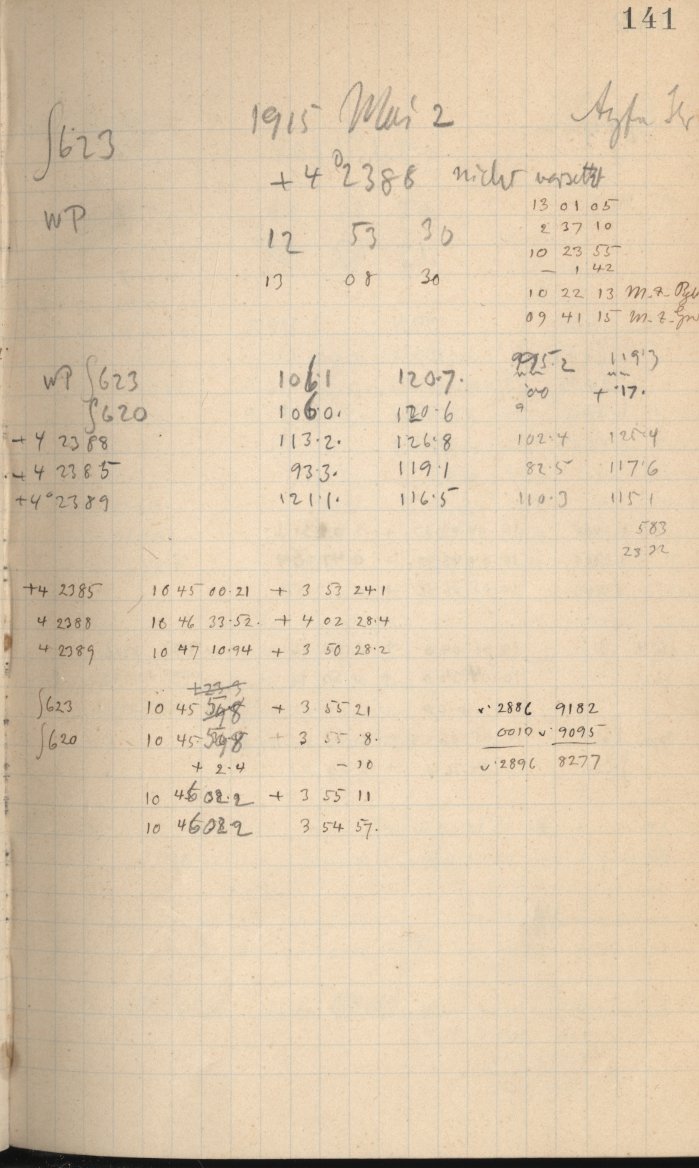 141
1915 Mai 2
∫623
+4° 2388 nicht versetzt
WP
12 53 30
13 08 30
13 01 05
2 37 10
10 23 55
– 1 42
10 22 13 M.Z.
09 41 15 M.Z.
WP ∫623 106.1 120.7. 2 119.3
∫620 106.0. 120.6 00 + .17.
+4 2388 113.2. 126.8 102.4 125.4
+4 2385 93.3. 119.1 82.5 117.6
+4° 2389 121.1. 116.5 110.3 115.1
583
23.22
+4 2385 10 45 00.21 + 3 53 24.1
4 2388 10 46 33.52. + 4 02 28.4
4 2389 10 47 10.94 + 3 50 28.2
∫623 10 45 + 3 55 21
∫620 10 45 + 3 55 8.
+ 2.4 – 10
10 46 02.2 + 3 55 11
10 46 02.2 3 54 57.
v.2886 9182
0010 v.9095
v.2896 8277